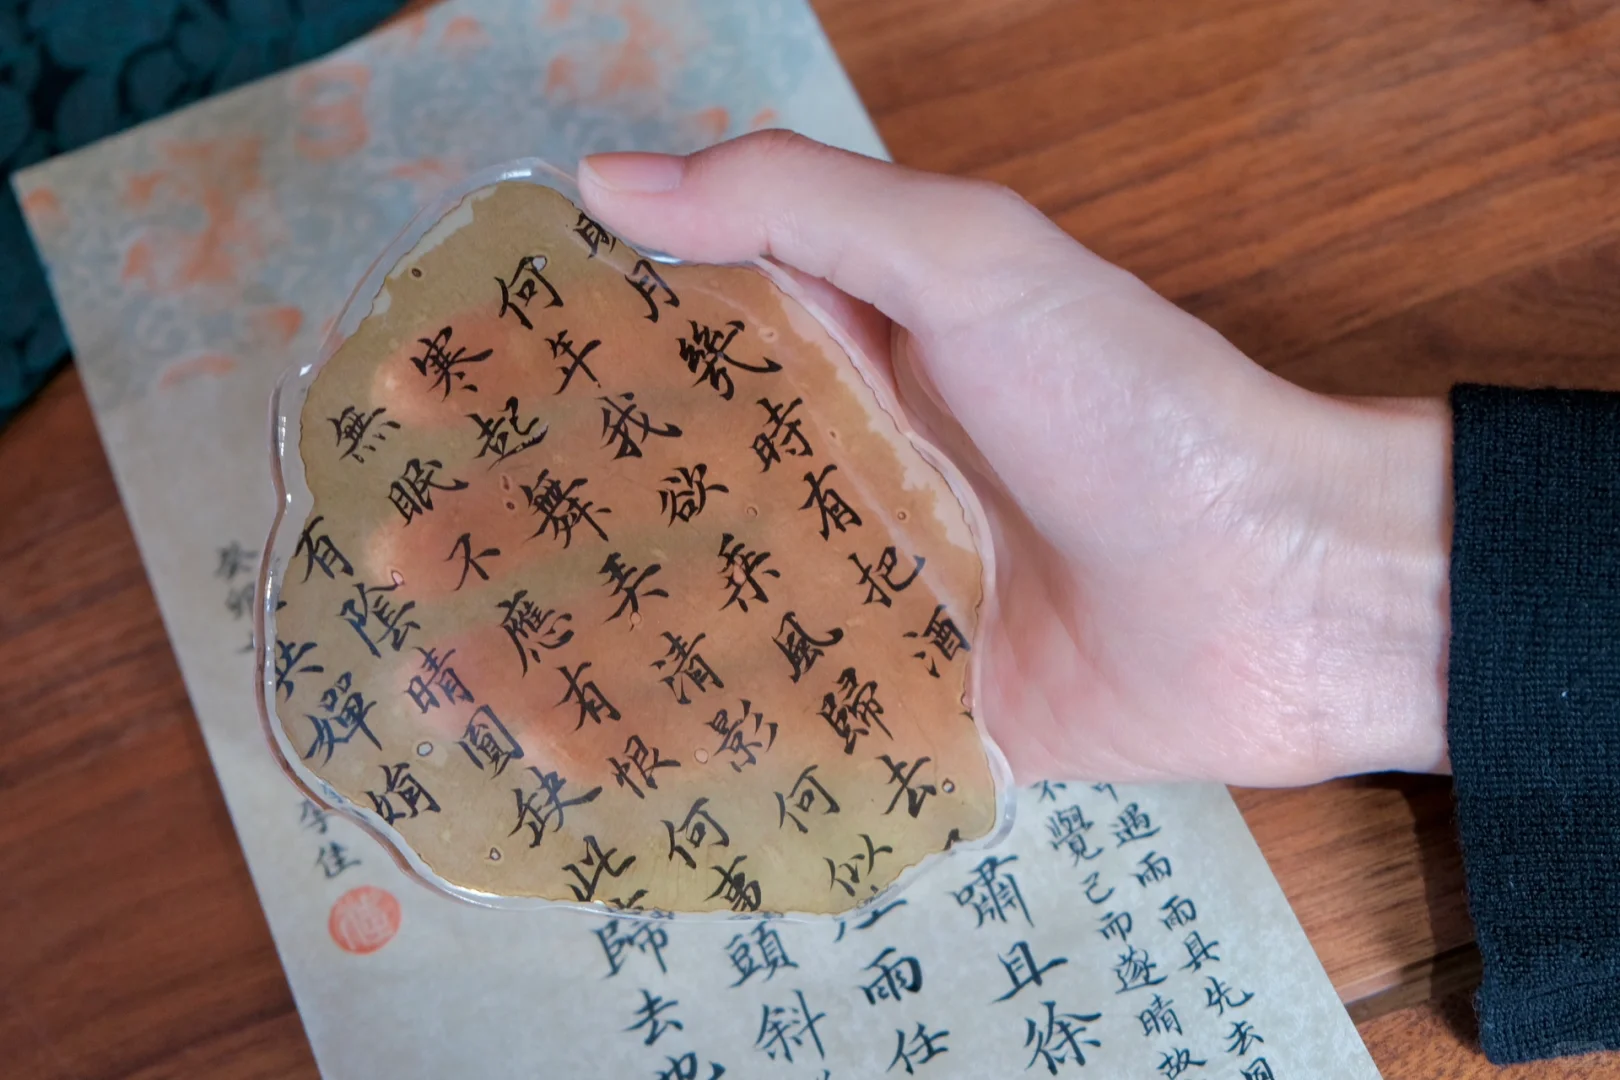 明月幾時有把酒
何年我欲乘風歸去
寒起舞弄清影何似
無眠不應有恨何事
有陰晴圓缺此
共嬋娟
中遇雨雨具先去同
不覺已而遂晴故
嘯且徐
雨任
頭斜
歸去也
癸卯
李佳